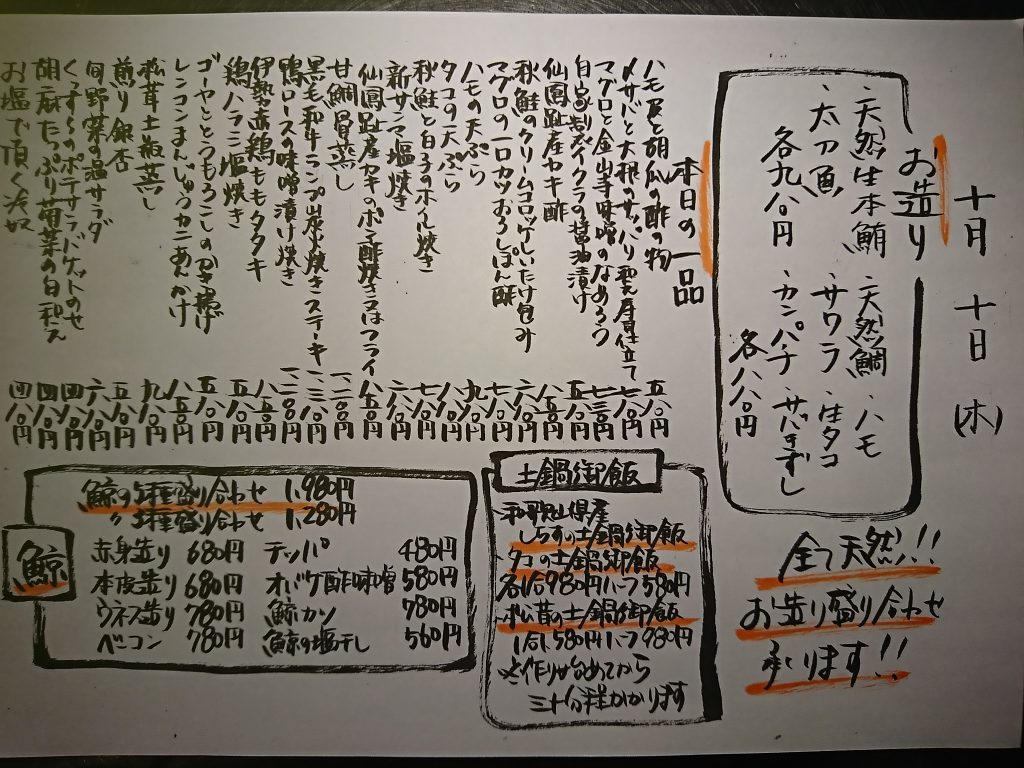 十月 十日 (木)
お造り
・天然生本鮪 ・天然鯛 ・ハモ
・太刀魚 ・サワラ ・生タコ
各九八〇円 ・カンパチ ・サバきずし
各八八〇円
全て天然!!
お造り盛り合わせ
承ります!!
本日の一品
ハモ皮と胡瓜の酢の物 五八〇円
〆サバと大根のサッパリ 仕立て 七八〇円
マグロと金山寺味噌のなめろう
自家製イクラの醤油漬け 五八〇円
仙鳳趾産カキ酢
秋鮭のクリームコロッケしいたけ包み 六八〇円
マグロの一口カツおろしぽん酢 七八〇円
ハモの天ぷら 九八〇円
タコの天ぷら 六八〇円
秋鮭と白子のホイル焼き 七八〇円
新サンマ塩焼き 六八〇円
仙鳳趾産カキのポン酢焼き又はフライ 五八〇円
甘鯛骨蒸し
黒毛和牛ランプ炭火焼きステーキ
鴨ロースの味噌漬け焼き
伊勢赤鶏ももタタキ 八八〇円
鶏ハラミ塩焼き 五八〇円
ゴーヤととうもろこしのかき揚げ 五八〇円
レンコンまんじゅうカニあんかけ
松茸土瓶蒸し 九八〇円
煎り銀杏 五八〇円
旬野菜の温サラダ 六八〇円
くんずのポテサラバケットのせ 四八〇円
胡麻たっぷり菊菜の白和え 四八〇円
お塩で頂く冷奴 四八〇円
土鍋御飯
・和歌山県産
しらすの土鍋御飯
・タコの土鍋御飯
各1合980円ハーフ580円
・松茸の土鍋御飯
1合1,580円ハーフ980円
※作り始めてから
三十分程かかります
鯨
鯨の5種盛り合わせ 1,980円
〃3種盛り合わせ 1,280円
赤身造り 680円 テッパ 480円
本皮造り 680円 オバケ酢味噌 580円
ウネス造り 780円 鯨カツ 780円
ベーコン 780円 鯨の塩干し 560円